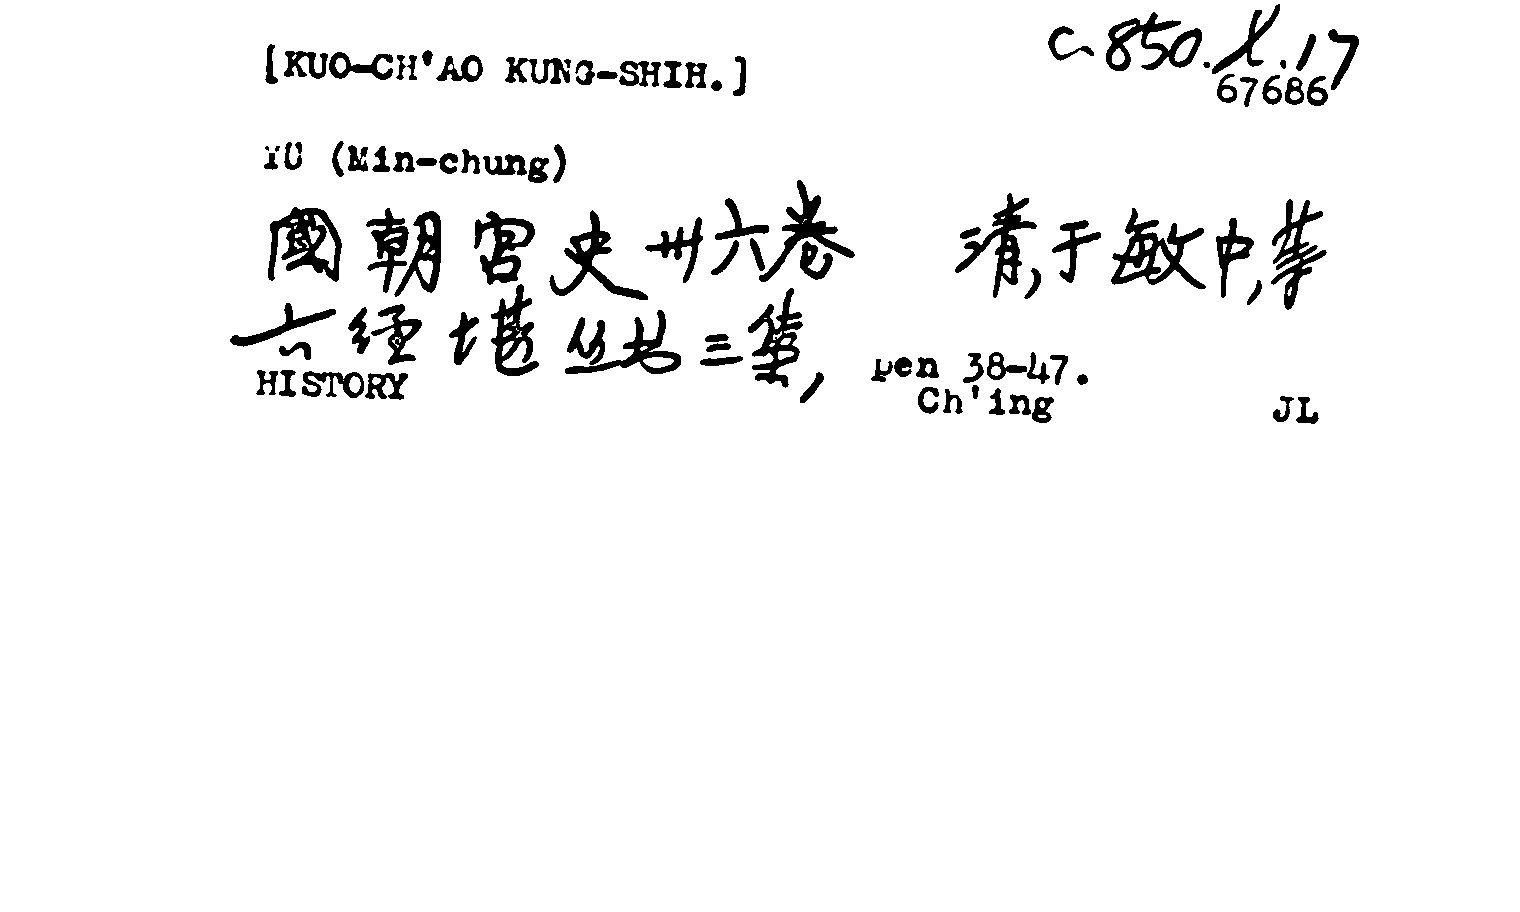 [KUO-CH'AO KUNG-SHIH.]
C.850.X.17
67686
YU (Min-chung)
國朝宮史卅六卷 清,于敏中,等
六經堪丛书三集, pen 38-47.
HISTORY Ch'ing JL